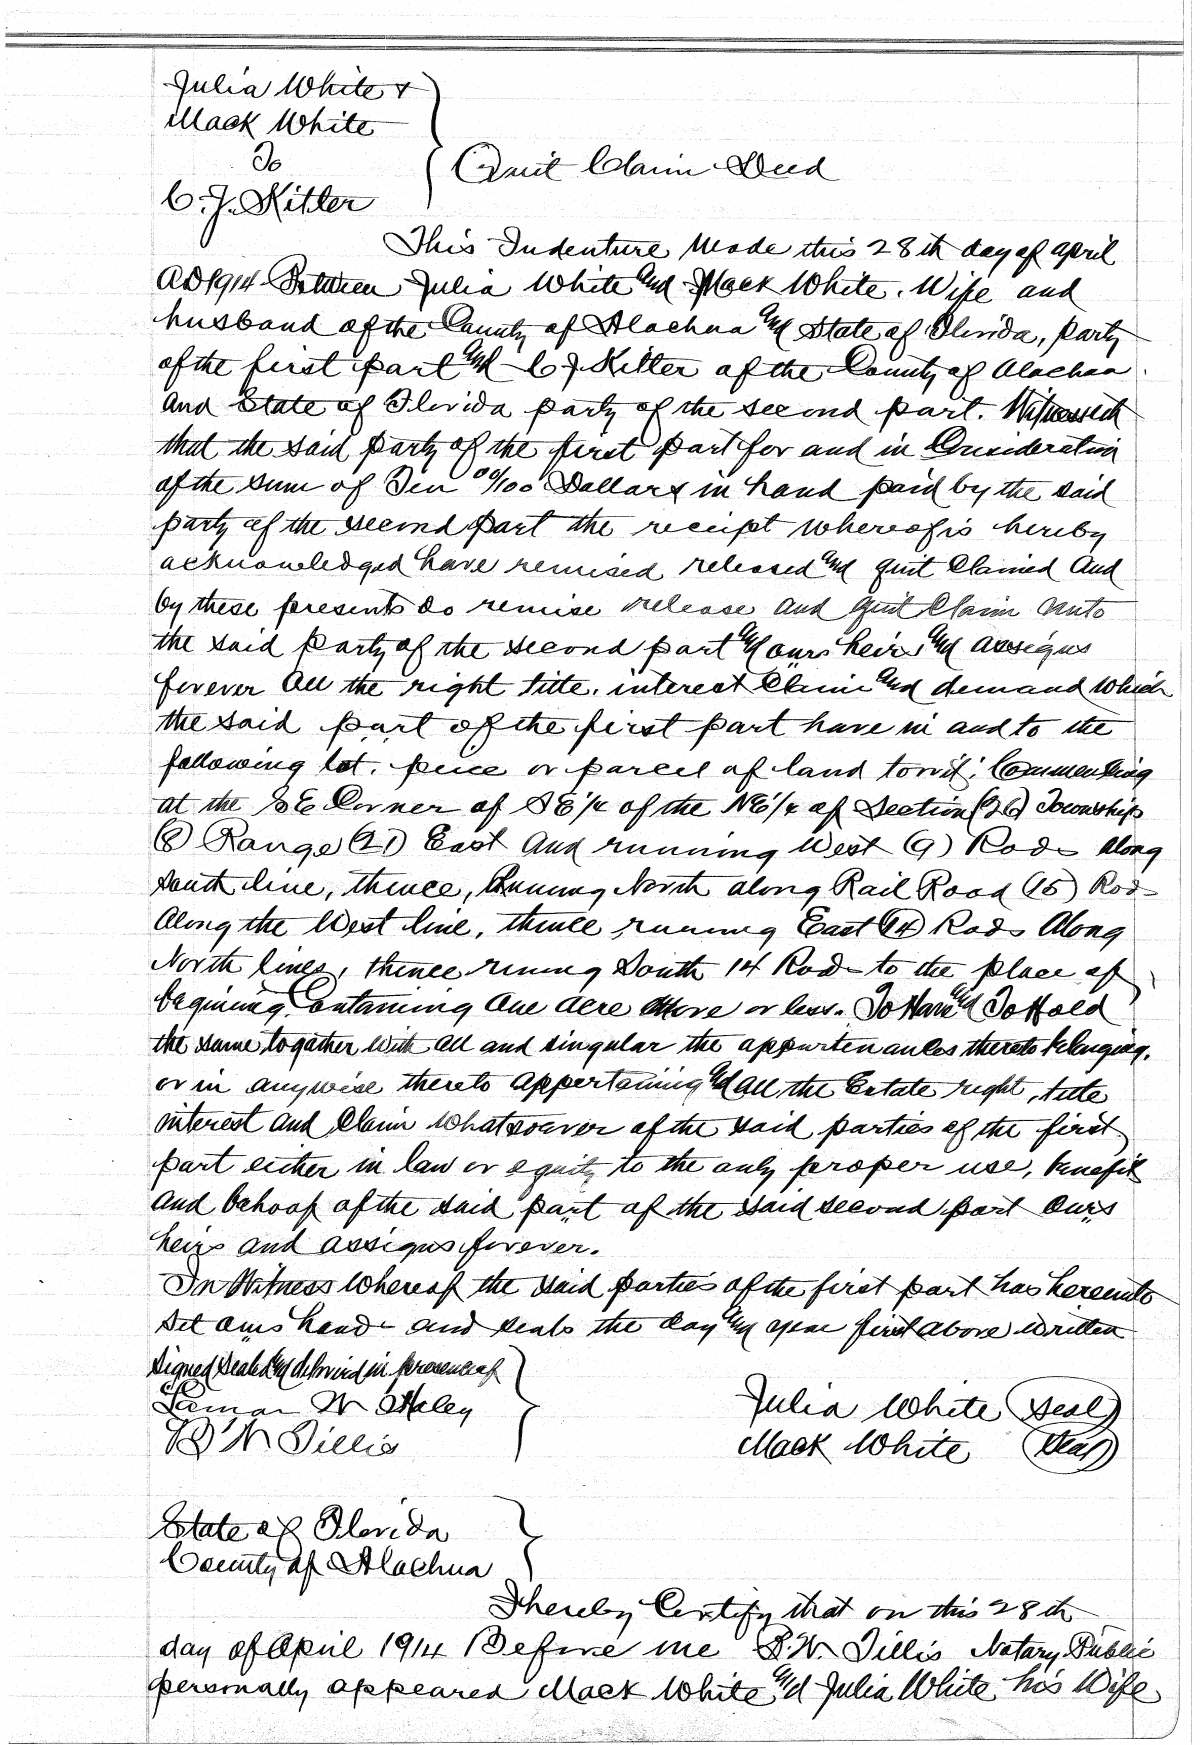 Julia White &
Mack White
To
C. J. Hitler
Quit Claim Deed
This Indenture Made this 28th day of april
AD 1914 Between Julia White and Mack White, Wife and
husband of the County of Alachua and State of Florida, party
of the first part and C J Hitler of the County of Alachua
And State of Florida party of the second part. Witnesseth
that the said party of the first part for and in Consideration
of the sum of Ten 00/100 Dollars in hand paid by the said
party of the second part the receipt whereof is hereby
acknowledged have remised released and quit Claimed And
by these presents do remise release and quit Claim unto
the said Party of the second part and ours heirs and assigns
forever All the right title, interest Claim and demand which
the said part of the first part have in and to the
following lot, piece or parcel of land towit; Commencing
at the SE Corner of SE 1/4 of the NE 1/4 of Section (26) Township
(8) Range (21) East And running West (9) Rods along
south line, thence, Running North along Rail Road (15) Rods
Along the West line, thence running East (14) Rods Along
North lines, thence runing South 14 Rods to the place of
begining Containing One Acre More or less. To Have and To Hold
the same together with all and singular the appurtenances thereto belonging,
or in anywise thereto Appertaining and all the Estate right, title
interest and Claim whatsoever of the said parties of the first
part either in law or equity to the only proper use, benefit
And behoof of the said part of the said second part ours
heirs and assigns forever.
In Witness Whereof the said parties of the first part has hereunto
set ours hands and seals the day and year first above written
Signed Sealed and delivered in presence of
W
B W Tillis
Julia White (Seal)
Mack White (Seal)
State of Florida
County of Alachua
I hereby Certify that on this 28th
day of April 1914 Before me B. W. Tillis Notary Public
personally appeared Mack White and Julia White his Wife